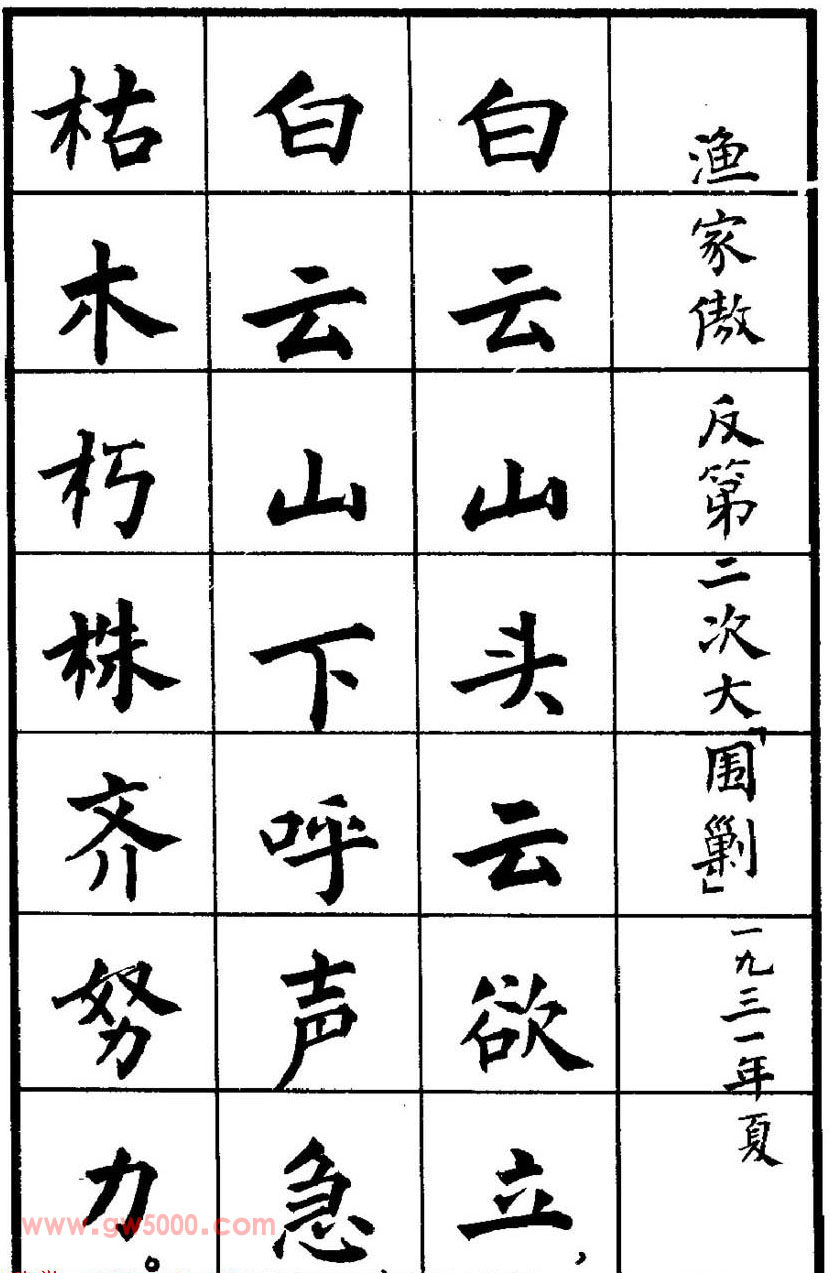 渔家傲 反第二次大「围剿」 一九三一年夏
白云山头云欲立,
白云山下呼声急
枯木朽株齐努力。
www.gw5000.com